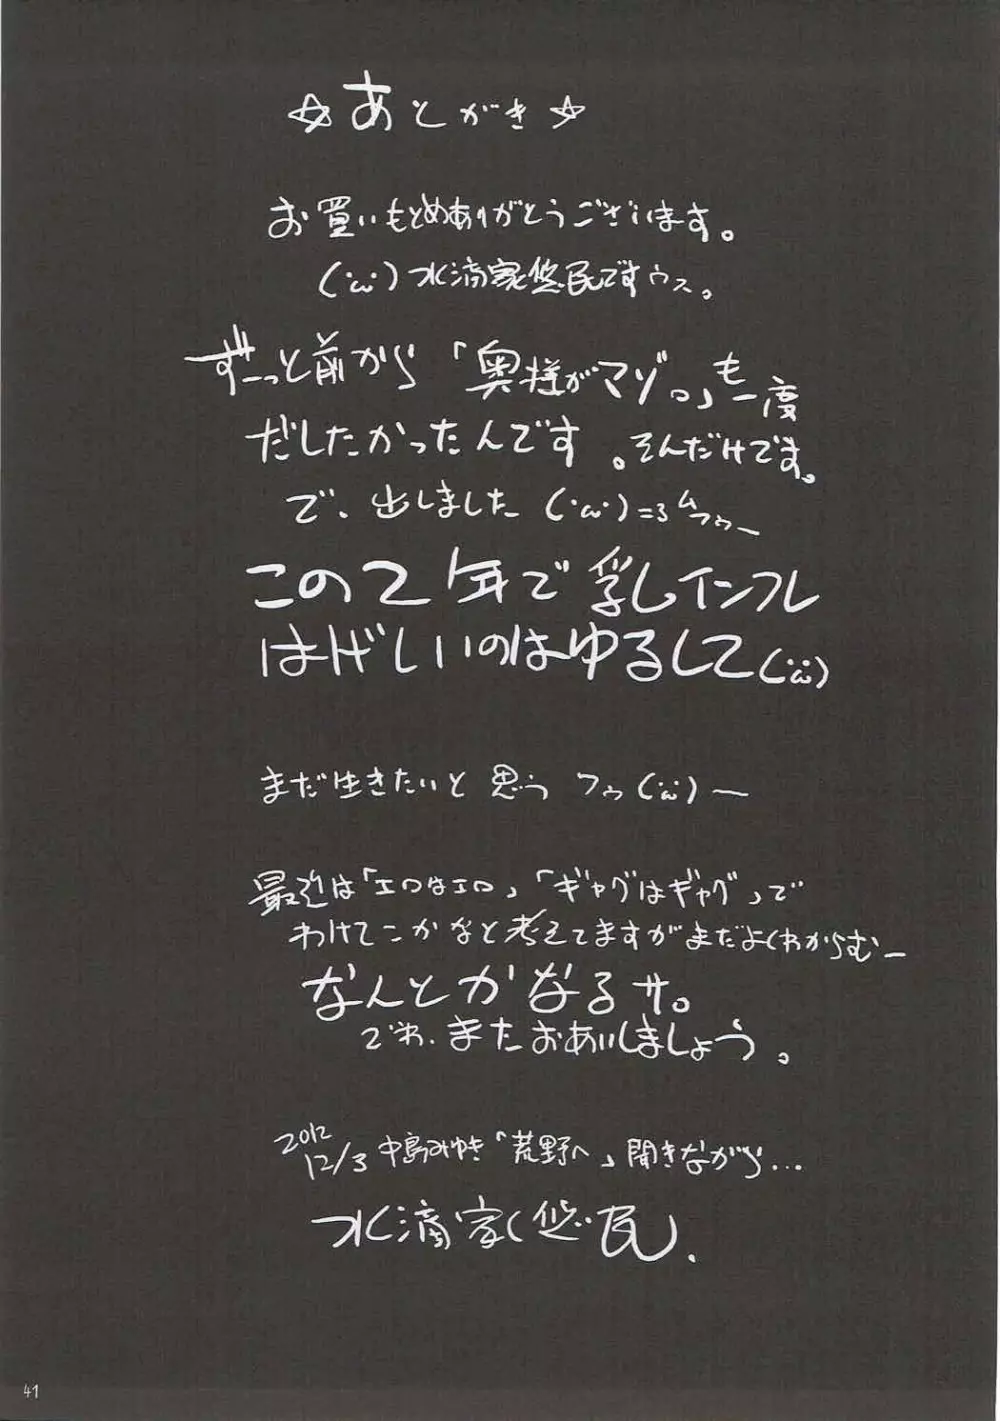 ☆あとがき☆
お買いもとめありがとうございます。
(・ω・)水滴家悠民ですウス。
ずーっと前から「奥様がマゾ。」も一度
だしたかったんです。そんだけです。
で、出しました(・ω・)=3 ムフゥー
この2年で乳インフレ
はげしいのはゆるして(・ω・)
まだ生きたいと思う フゥ(・ω・)ー
最近は「エロはエロ」「ギャグはギャグ」で
わけてこかなと考えてますがまだよくわからむー
なんとかなるサ。
でわ、またおあいしましょう。
2012
12/3 中島みゆき「荒野へ」聞きながら…
水滴家悠民.
41